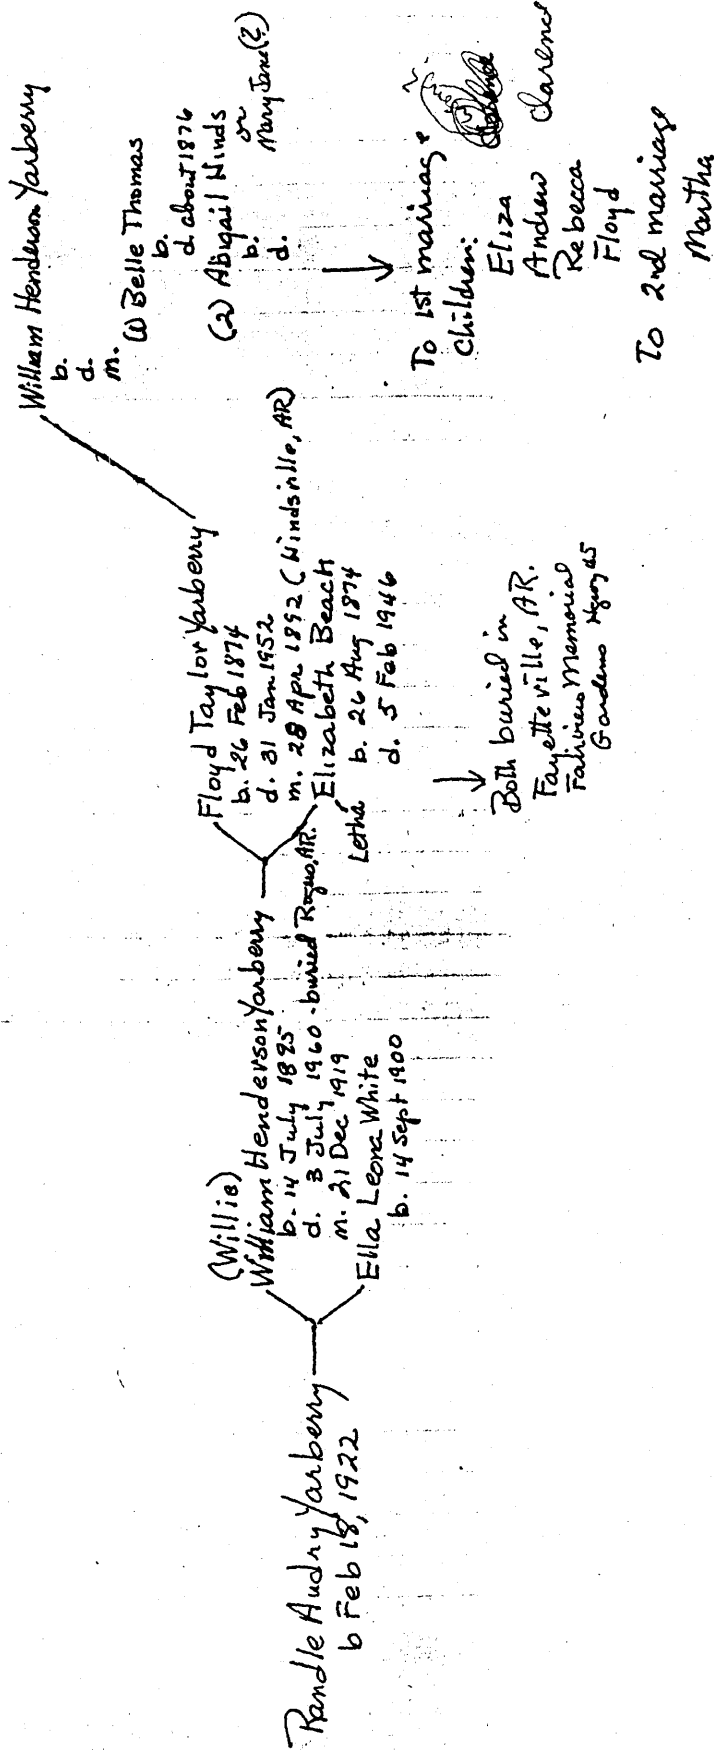 Randle Audry Yarberry
b Feb 18, 1922
(Willie)
William Henderson Yarberry
b. 14 July 1895
d. 3 July 1960 - buried Rogers, AR.
m. 21 Dec 1919
Ella Leora White
b. 14 Sept 1900
Floyd Taylor Yarberry
b. 26 Feb 1874
d. 31 Jan 1952
m. 28 Apr 1892 (Hindsville, AR)
Elizabeth Beach
Letha
b. 26 Aug 1874
d. 5 Feb 1946
Both buried in
Fayetteville, AR.
Fairview Memorial
Gardens
William Henderson Yarberry
b.
d.
m.
(1) Belle Thomas
b.
d. about 1876
(2) Abigail Hinds
or
Mary Jane (?)
b.
d.
To 1st marriage
Children:
Eliza
Andrew
Rebecca
Floyd
Clarence
To 2nd marriage
Martha